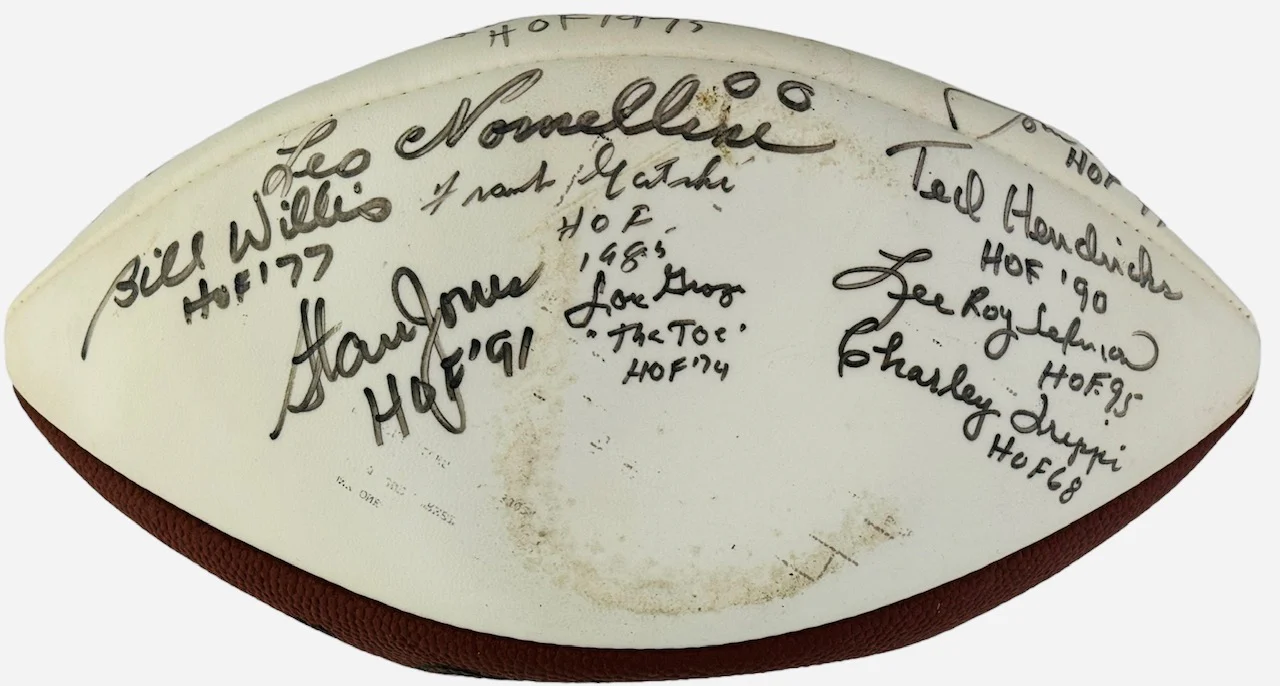 HOF 1975
Leo Nomellini
00
Bill Willis
HOF '77
Frank Gatski
HOF
1985
Stan Jones
HOF '91
Lou Groza
"The Toe"
HOF '74
HOF
Ted Hendricks
HOF '90
Lee Roy Selmon
HOF 95
Charley Trippi
HOF 68